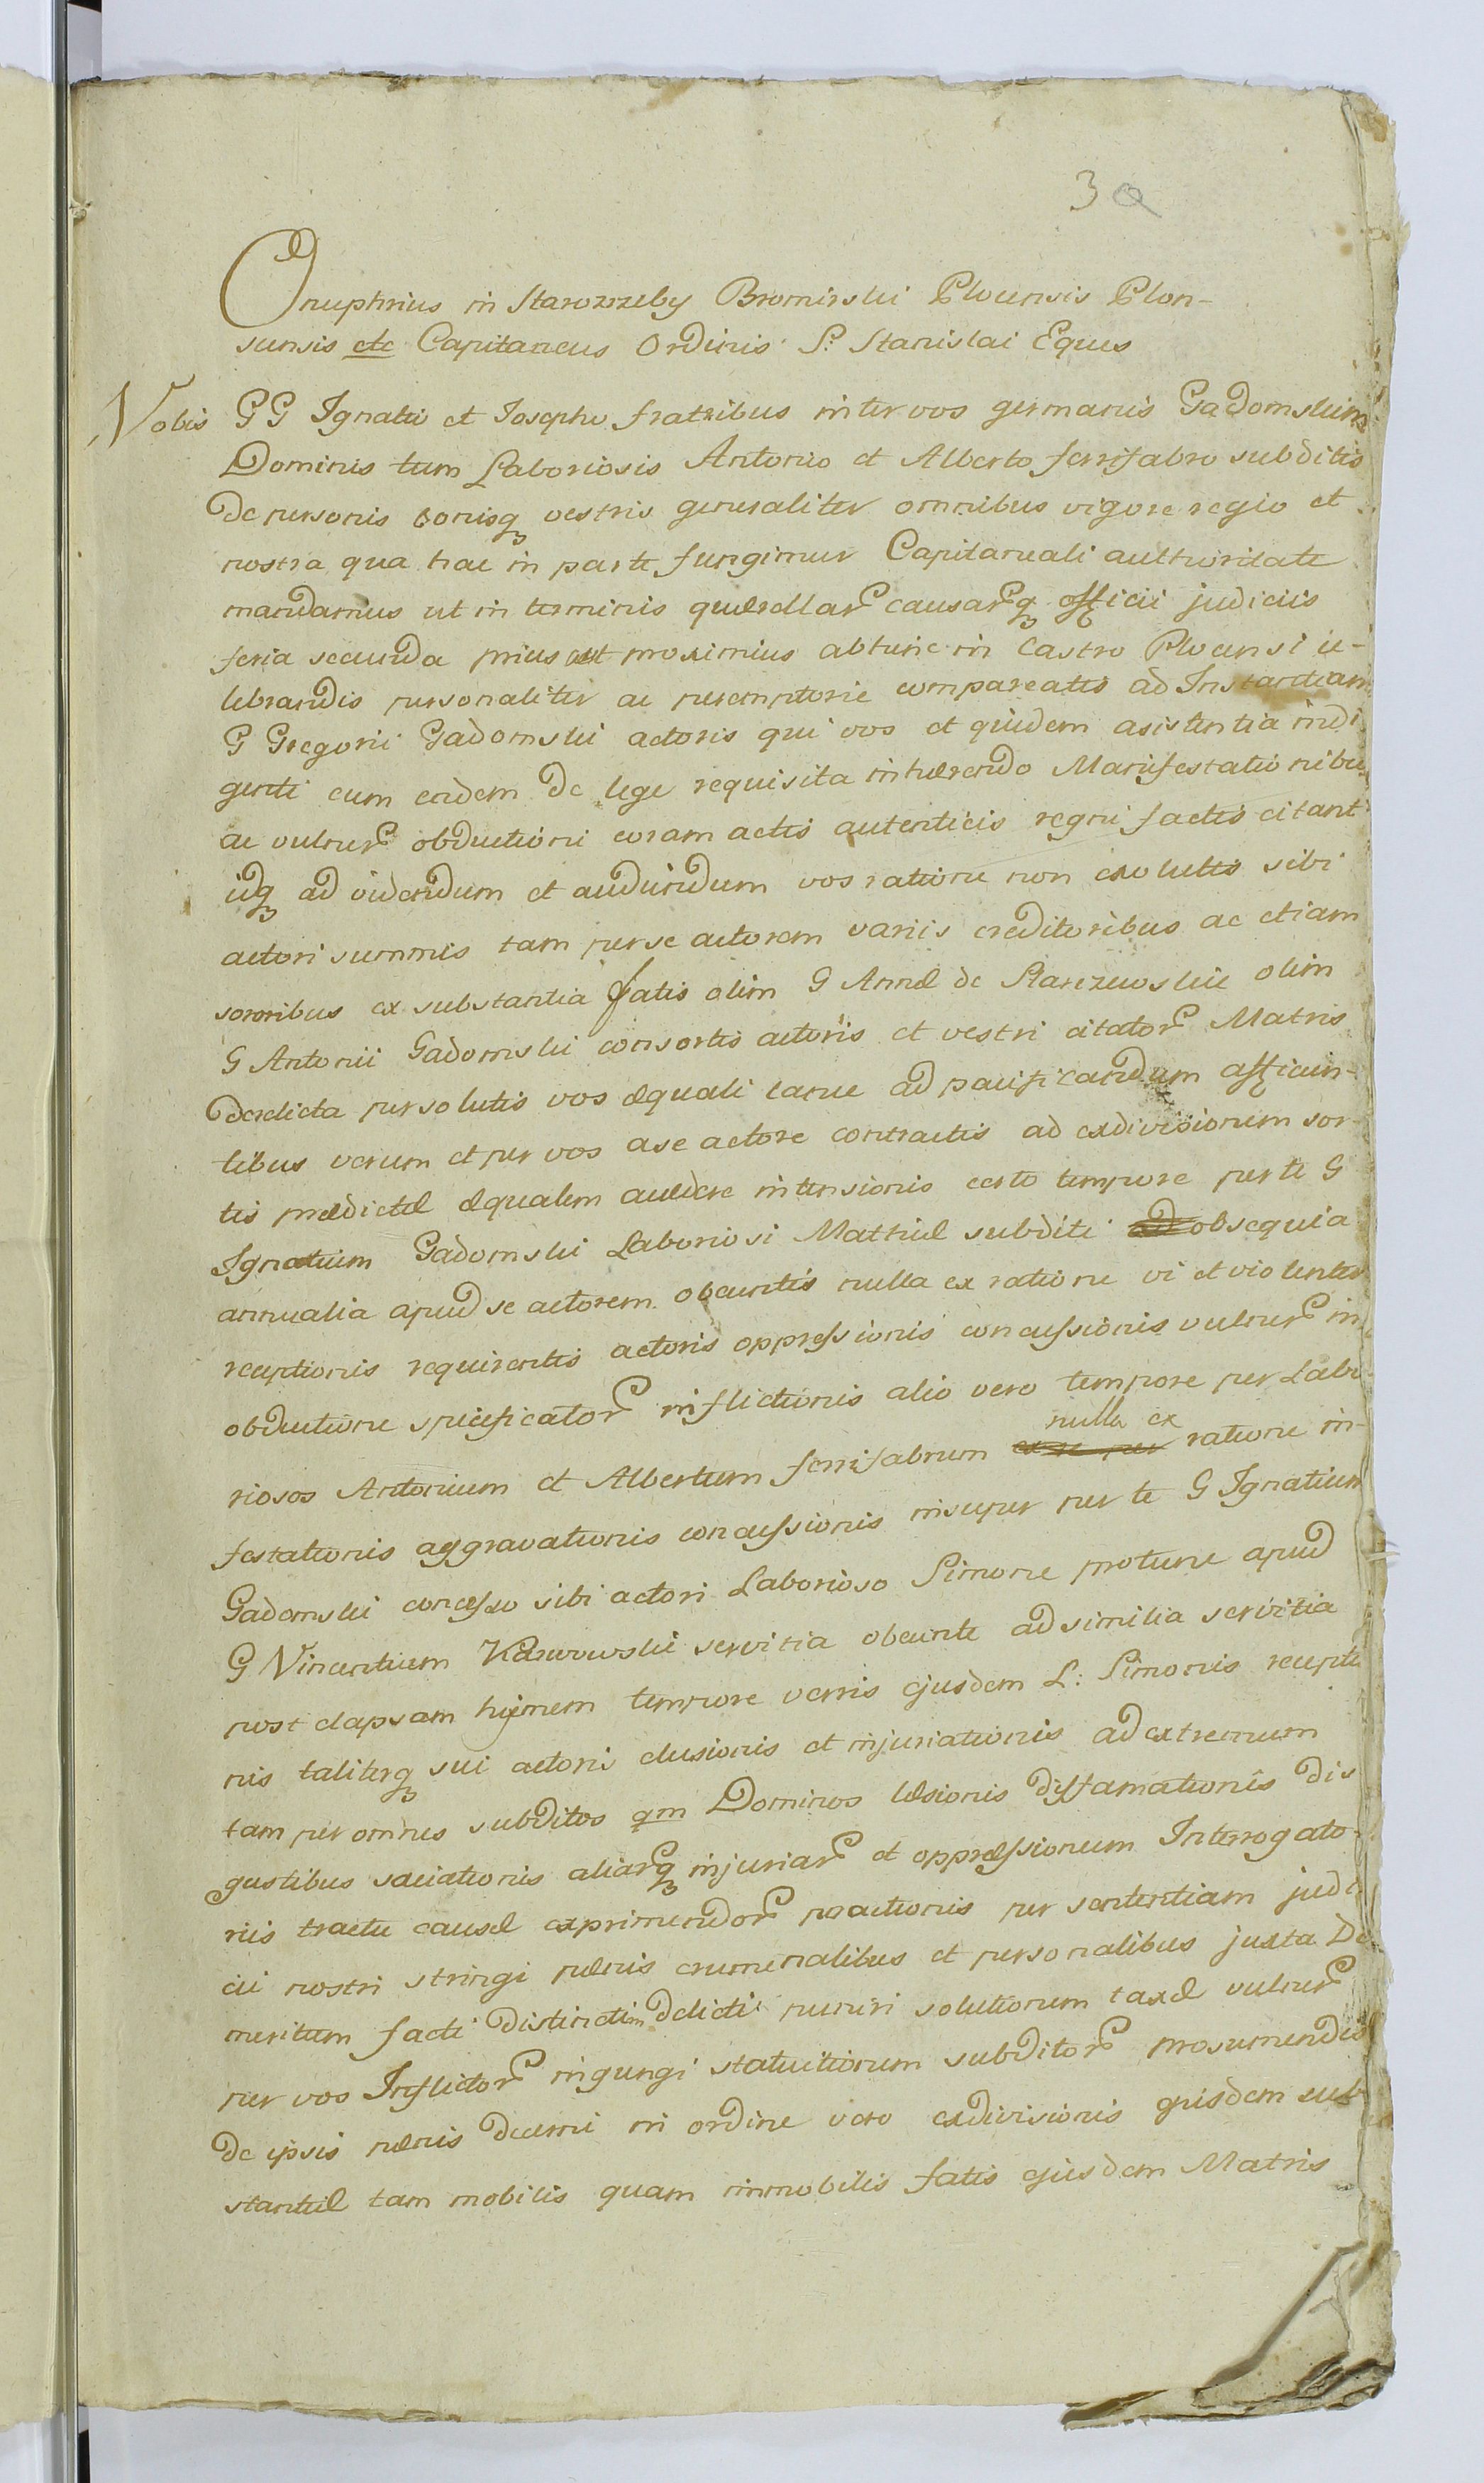 3a
Onuphrius in Starozrzeby Bromirski Plocensis Plon-
scensis etc Capitaneus Ordinis S: Stanislai Eques
Vobis GG Ignatio et Josepho fratribus inter vos germanis Gadomskim
Dominis tum Laboriosis Antonio et Alberto ferrifabro subditis
de personis bonisq vestris generaliter omnibus vigore regio et
nostra qua hac in parte fungimur Capitaneali authoritate
mandamus ut in terminis quærellar causarq officii judiciis
feria secunda prius aut proximius abtunc in Castro Plocensi ce-
lebrandis personaliter ac peremptorie compareatis ad Instantiam
G Gregorii Gadomski actoris qui vos et quidem asistentia indi
genti cum eadem de lege requisita inhærendo Manifestationibu
ac vulner obductioni coram actis autenticis regni factis citant
idq ad videndum et audiendum vos ratione non exolutis sibi
actori summis tam per se actorem variis creditoribus ac etiam
sororibus ex substantia fatis olim G Annæ de Starczewskie olim
G Antonii Gadomski consortis actoris et vestri citator Matris
derelicta persolutis vos æquali carne ad pacificandum afficien-
tibus verum et per vos a se actore contractis ad exdivisionem sor-
tis prædictæ æqualem accedere intensionis certo tempore per te G
Ignatium Gadomski Laboriosi Mathiæ subditi obsequia
annualia apud se actorem obeuntis nulla ex ratione vi et violenter
receptionis requirentis actoris oppressionis concussionis vulner in
obductione specificator inflictionis alio vero tempore per Labo
riosos Antonium et Albertum ferrifabrum nulla ex ratione in-
festationis aggravationis concussionis insuper per te G Ignatium
Gadomski concesso sibi actori Laborioso Simone protunc apud
G Vincentium Karwowski servitia obeunte ad similia servitia
post elapsam hyemem tempore verris ejusdem L: Simonis receptio
nis taliterq sui actoris elusionis et injuriationis ad extremum
tam per omnes subditos qm Dominos læsionis diffamationis dis
gustibus saciationis aliarq injuriar et oppræssionum Interrogato-
riis tractu causæ exprimendor peractionis per sententiam judi
cii nostri stringi pænis crumenalibus et personalibus juxta De
meritum facti distinctim delicti puniri solutionem taxæ vulner
per vos Inflictor ingungi statuitionem subditor prosumendis
de ipsis pænis decerni in ordine vero exdivisionis ejusdem sub
stantiæ tam mobilis quam immobilis fatis ejusdem Matris